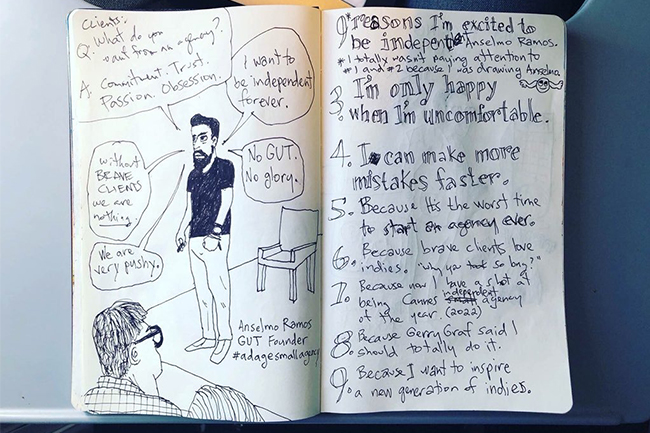 Clients:
Q. What do you
want from an agency?
A. Commitment. Trust.
Passion. Obsession.
I want to
be independent
forever.
No GUT.
No glory.
without
BRAVE
CLIENTS
we are
nothing.
We are
very pushy.
Anselmo Ramos
GUT Founder
#adagesmallagency
9 reasons I'm excited to
be indepent Anselmo Ramos.
#1 totally wasn't paying attention to
#1 and #2 because I was drawing Anselmo
3. I'm only happy
when I'm uncomfortable.
4. I can make more
mistakes faster.
5. Because It's the worst time
to start an agency ever.
6. Because brave clients love
indies. "why you took so long?"
7. Because now I have a shot at
being Cannes independent agency
of the year. (2022)
8. Because Gerry Graf said I
should totally do it.
9. Because I want to inspire
a new generation of indies.